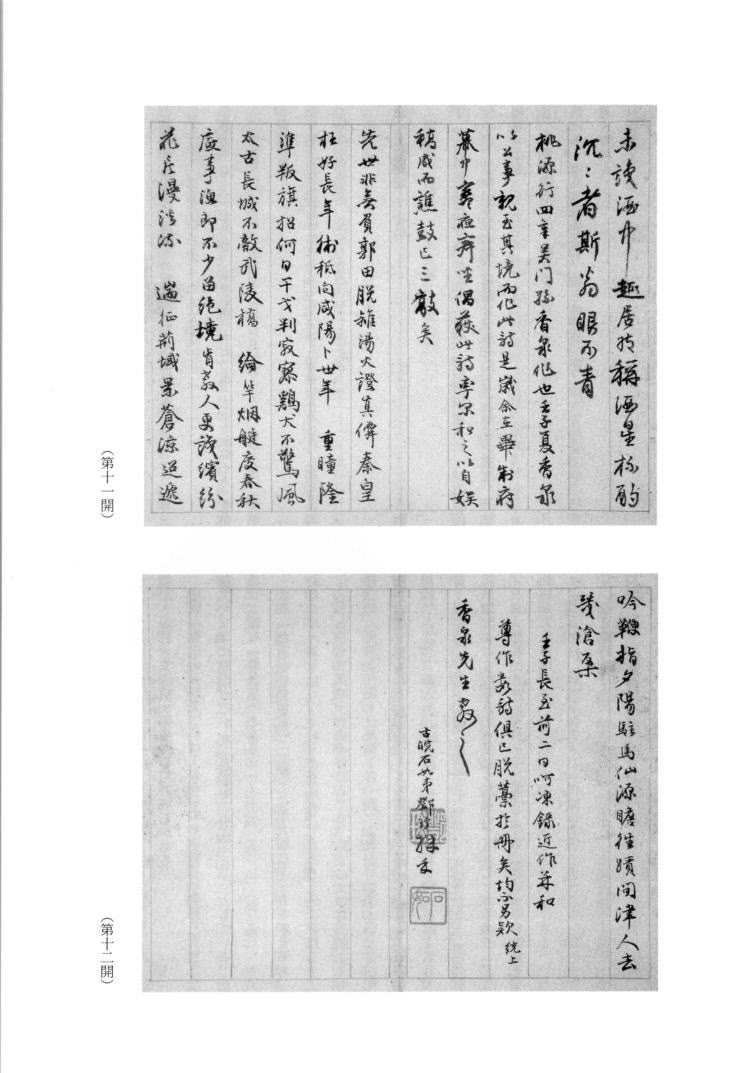 未談酒中趣居然稱酒星杯酌
沉〻者斯翁眼不青
桃源行四章吳門孫香泉作也壬子夏香泉
以公事親至其境而作此詩是歲余在畢制府
幕中寒夜齋坐偶獲此詩率尔和之以自娛
稿成而譙鼓已三敲矣
先世非無負郭田脫離湯火證真僊秦皇
枉好長年術秪向咸陽卜世年 重瞳隆
準叛旗招何日干戈判寂寥鷄犬不驚風
太古長城不敵武陵橋 綸竿烟艇度春秋
底事漁郎不少留絕境肯教人更識繽紛
花片漫隨流 遄征荊域景蒼涼迢遞
(第十一開)
吟鞭指夕陽駐馬仙源瞻往蹟問津人去
幾滄桑
壬子長至前二日呵凍錄近作並和
尊作數詩俱已脫藁於冊矣均不另欵 統上
香泉先生教之
古皖石如弟鄧
(第十二開)